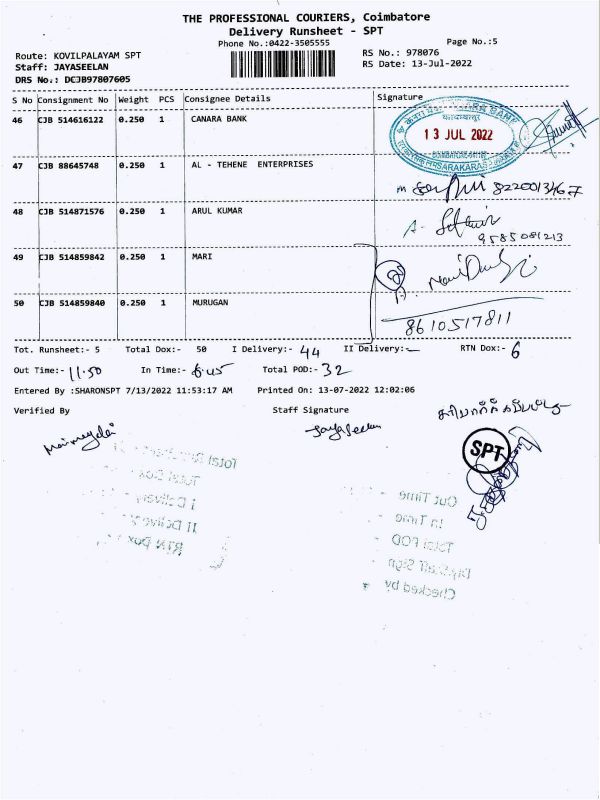 THE PROFESSIONAL COURIERS, Coimbatore
Delivery Runsheet - SPT
Phone No.:0422-3505555
Page No.:5
Route: KOVILPALAYAM SPT
RS No.: 978076
Staff: JAYASEELAN
RS Date: 13-Jul-2022
DRS No.: DCJB97807605
S No Consignment No Weight PCS Consignee Details Signature
46 CJB 514616122 0.250 1 CANARA BANK
13 JUL 2022
47 CJB 88645748 0.250 1 AL - TEHENE ENTERPRISES
8220013467
48 CJB 514871576 0.250 1 ARUL KUMAR
9585081213
49 CJB 514859842 0.250 1 MARI
50 CJB 514859840 0.250 1 MURUGAN
8610517811
Tot. Runsheet:- 5 Total Dox:- 50 I Delivery:- 44 II Delivery:- RTN Dox:- 6
Out Time:- 11.50 In Time:- 6.45 Total POD:- 32
Entered By :SHARONSPT 7/13/2022 11:53:17 AM Printed On: 13-07-2022 12:02:06
Verified By Staff Signature
Jayaseelan
SPT
Total Runsheet
Total Dox
I Delivery
II Delivery
RTN Dox
Out Time
In Time
Total POD
Dly.Staff Sign
Checked by